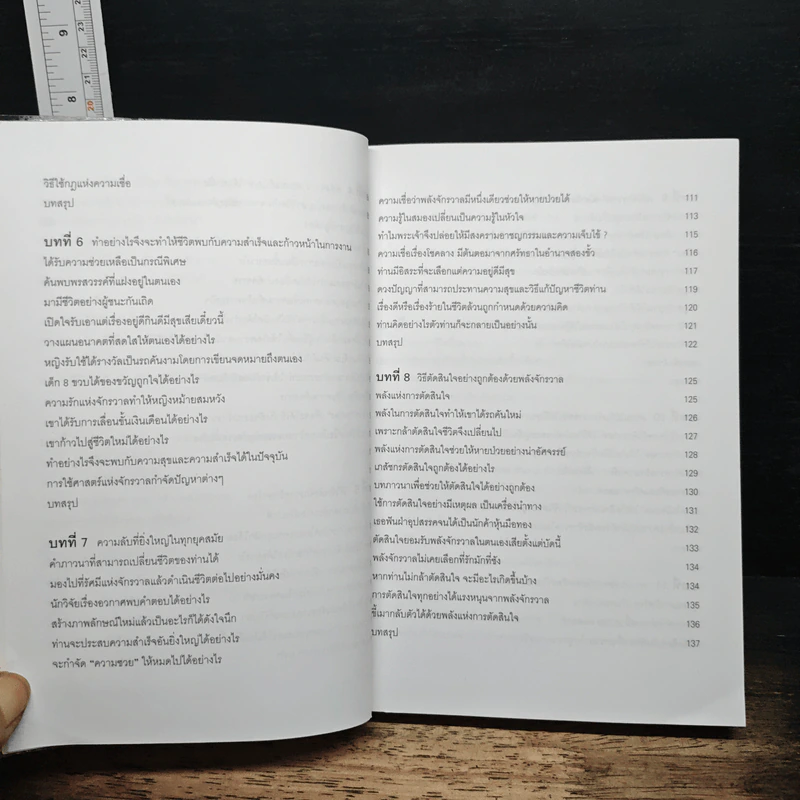 9
8
23
22
21
20
วิธีใช้กฎแห่งความเชื่อ
บทสรุป
บทที่ 6 ทำอย่างไรจึงจะทำให้ชีวิตพบกับความสำเร็จและก้าวหน้าในการงาน
ได้รับความช่วยเหลือเป็นกรณีพิเศษ
ค้นพบพรสวรรค์ที่แฝงอยู่ในตนเอง
มามีชีวิตอย่างผู้ชนะกันเถิด
เปิดใจรับเอาแต่เรื่องอยู่ดีกินดีมีสุขเสียเดี๋ยวนี้
วางแผนอนาคตที่สดใสให้ตนเองได้อย่างไร
หญิงรับใช้ได้รางวัลเป็นรถคันงามโดยการเขียนจดหมายถึงตนเอง
เด็ก 8 ขวบได้ของขวัญถูกใจได้อย่างไร
ความรักแห่งจักรวาลทำให้หญิงหม้ายสมหวัง
เขาได้รับการเลื่อนขั้นเงินเดือนได้อย่างไร
เขาก้าวไปสู่ชีวิตใหม่ได้อย่างไร
ทำอย่างไรจึงจะพบกับความสุขและความสำเร็จได้ในปัจจุบัน
การใช้ศาสตร์แห่งจักรวาลกำจัดปัญหาต่างๆ
บทสรุป
บทที่ 7 ความลับที่ยิ่งใหญ่ในทุกยุคสมัย
คำภาวนาที่สามารถเปลี่ยนชีวิตของท่านได้
มองไปที่รัศมีแห่งจักรวาลแล้วดำเนินชีวิตต่อไปอย่างมั่นคง
นักวิจัยเรื่องอวกาศพบคำตอบได้อย่างไร
สร้างภาพลักษณ์ใหม่แล้วเป็นอะไรก็ได้ดังใจนึก
ท่านจะประสบความสำเร็จอันยิ่งใหญ่ได้อย่างไร
จะกำจัด "ความซวย" ให้หมดไปได้อย่างไร
ความเชื่อว่าพลังจักรวาลมีหนึ่งเดียวช่วยให้หายป่วยได้ 111
ความรู้ในสมองเปลี่ยนเป็นความรู้ในหัวใจ 113
ทำไมพระเจ้าจึงปล่อยให้มีสงครามอาชญกรรมและความเจ็บไข้ ? 115
ความเชื่อเรื่องโชคลาง มีต้นตอมาจากศรัทธาในอำนาจสองขั้ว 116
ท่านมีอิสระที่จะเลือกแต่ความอยู่ดีมีสุข 117
ดวงปัญญาที่สามารถประทานความสุขและวิธีแก้ปัญหาชีวิตท่าน 119
เรื่องดีหรือเรื่องร้ายในชีวิตล้วนถูกกำหนดด้วยความคิด 120
ท่านคิดอย่างไรตัวท่านก็จะกลายเป็นอย่างนั้น 121
บทสรุป 122
บทที่ 8 วิธีตัดสินใจอย่างถูกต้องด้วยพลังจักรวาล 125
พลังแห่งการตัดสินใจ 125
พลังในการตัดสินใจทำให้เขาได้รถคันใหม่ 126
เพราะกล้าตัดสินใจชีวิตจึงเปลี่ยนไป 127
พลังแห่งการตัดสินใจช่วยให้หายป่วยอย่างน่าอัศจรรย์ 128
เภสัชกรตัดสินใจถูกต้องได้อย่างไร 129
บทภาวนาเพื่อช่วยให้ตัดสินใจได้อย่างถูกต้อง 130
ใช้การตัดสินใจอย่างมีเหตุผล เป็นเครื่องนำทาง 131
เธอฟันฝ่าอุปสรรคจนได้เป็นนักค้าหุ้นมือทอง 132
ตัดสินใจยอมรับพลังจักรวาลในตนเองเสียตั้งแต่บัดนี้ 133
พลังจักรวาลไม่เคยเลือกที่รักมักที่ชัง 134
หากท่านไม่กล้าตัดสินใจ จะมีอะไรเกิดขึ้นบ้าง 134
การตัดสินใจทุกอย่างได้แรงหนุนจากพลังจักรวาล 135
ขี้เมากลับตัวได้ด้วยพลังแห่งการตัดสินใจ 136
บทสรุป 137